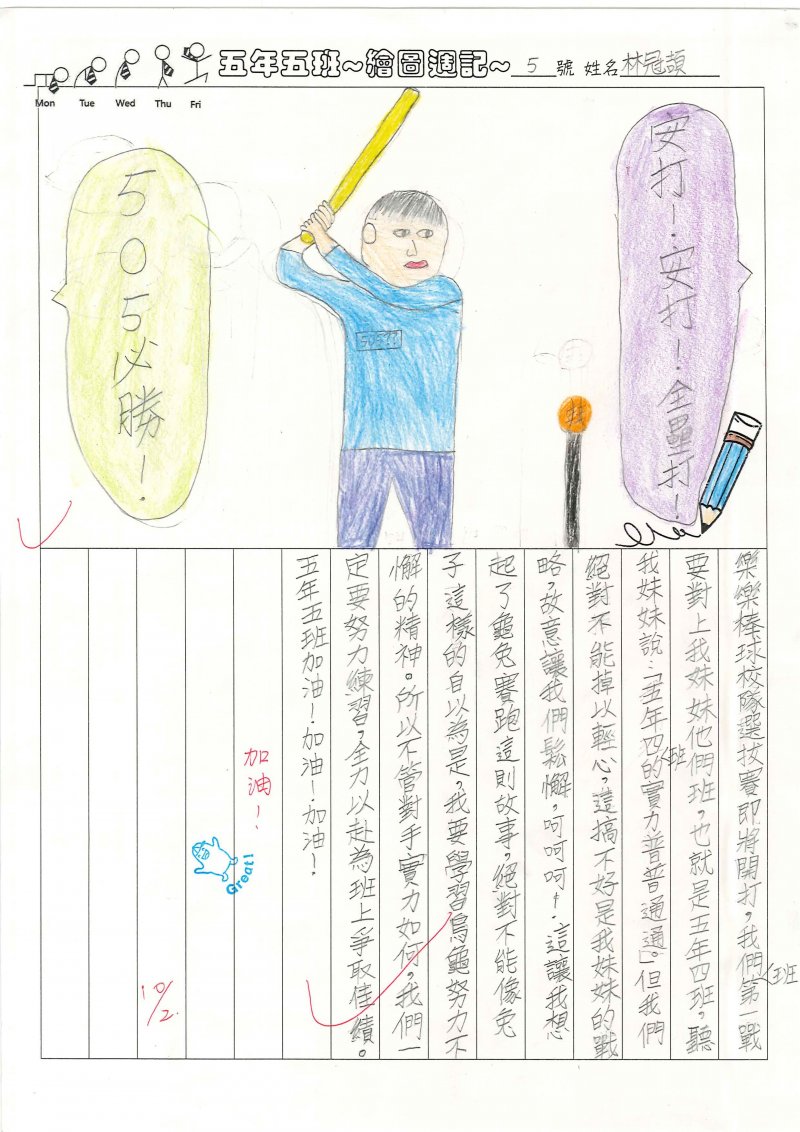 五年五班~繪圖週記~ 5 號 姓名 林冠頡
Mon Tue Wed Thu Fri
安打!安打!全壘打!
505必勝!
樂樂棒球校隊選拔賽即將開打,我們第一戰
班
要對上我妹妹他們班,也就是五年四班,聽
我妹妹說:「五年四的實力普普通通。」但我們
班
絕對不能掉以輕心,這搞不好是我妹妹的戰
略,故意讓我們鬆懈,呵呵呵!這讓我想
起了龜兔賽跑這則故事,絕對不能像兔
子這樣的自以為是,我要學習烏龜努力不
懈的精神。所以不管對手實力如何,我們一
定要努力練習,全力以赴為班上爭取佳績。
五年五班加油!加油!加油!
加油!
Great!
10/2